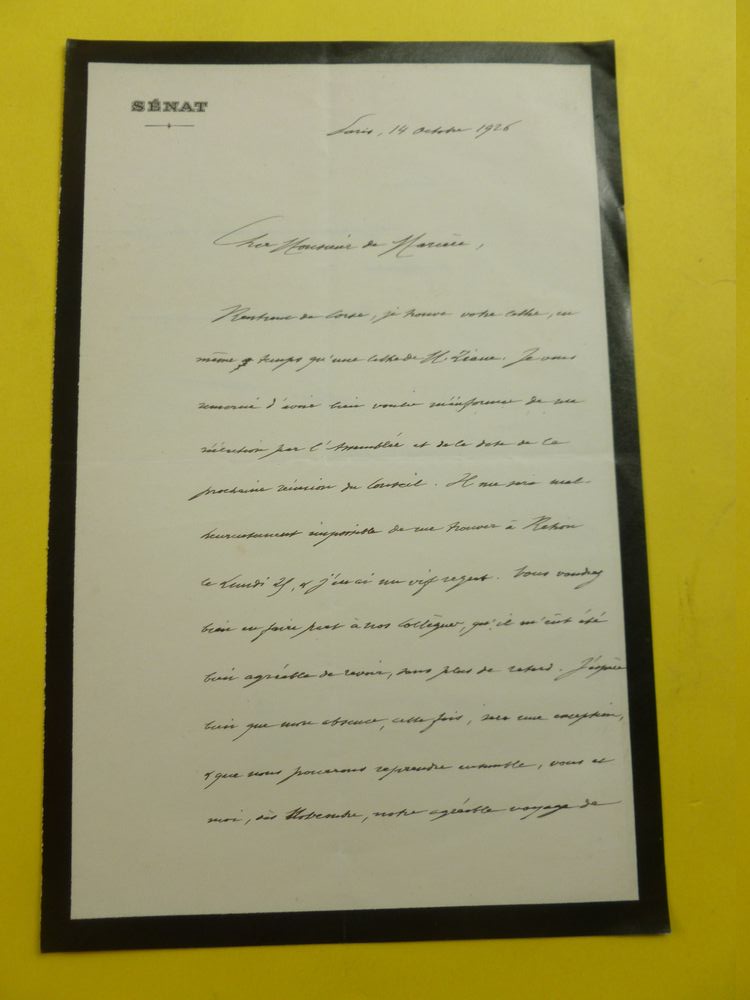 SÉNAT
Paris, 14 Octobre 1926
Cher Monsieur de
Rentrant de Corse, je trouve votre lettre, en
même temps qu'une lettre de M. Ziane. Je vous
remercie d'avoir bien voulu m'informer de ma
réélection par l'Assemblée et de la date de la
prochaine réunion du Conseil. Il me sera mal-
heureusement impossible de me trouver à
le Lundi 25, & j'en ai un vif regret. Vous voudrez
bien en faire part à nos Collègues, qu'il m'eût été
bien agréable de revoir, sans plus de retard. J'espère
bien que mon absence, cette fois, sera une exception,
& que nous pourrons reprendre ensemble, vous et
moi, dès Novembre, notre agréable voyage de